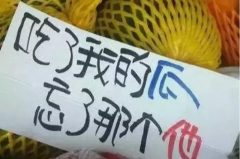 吃了我的瓜
忘了那个他